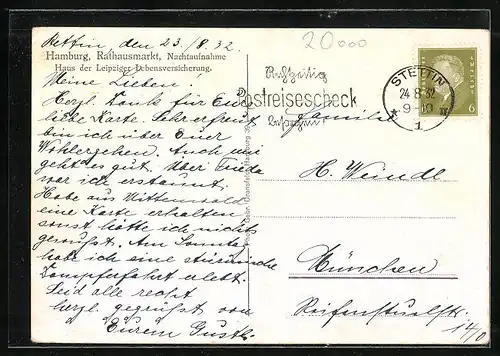 Stettin, den 23./8.32.
Hamburg, Rathausmarkt, Nachtaufnahme
Haus der Leipziger Lebensversicherung.
Meine Lieben.
Herzl. Dank für Eure
liebe Karte. Sehr erfreut
bin ich über Euer
Wohlergehen. Auch mir
geht es gut. Über Frieda
war ich erstaunt.
Habe aus Mittenwald
eine Karte erhalten
sonst hätte ich nichts
gewußt. Am Sonntag
habe ich eine stürmische
Dampferfahrt erlebt.
Seid alle recht
herzl. gegrüßt von
Eurem Gustl.
20000
Rechtzeitig
Postreisescheck
besorgen
STETTIN
24.8.32
9-10
1
6
Familie
H. Weindl
München
14/0